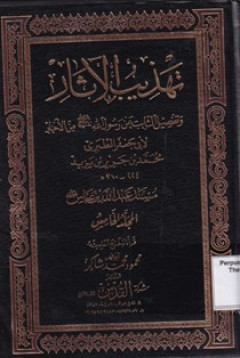 تهذيب الآثار
وتفصيل الثابت عن رسول الله ﷺ من الأخبار
لأبي جعفر الطبري
محمد بن جرير بن يزيد
٢٢٤ - ٣١٠ هـ
مسند عبد الله بن عباس
قرأه وخرج أحاديثه
محمود محمد شاكر
Perpu
The